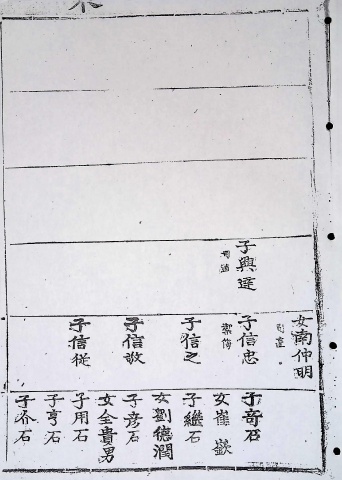 子興達
司直
女南仲明
司直
子信忠
子信之
子信敬
子信從
子奇石
女崔嶔
子繼石
女劉德潤
子彦石
女全貴男
子用石
子亨石
子介石